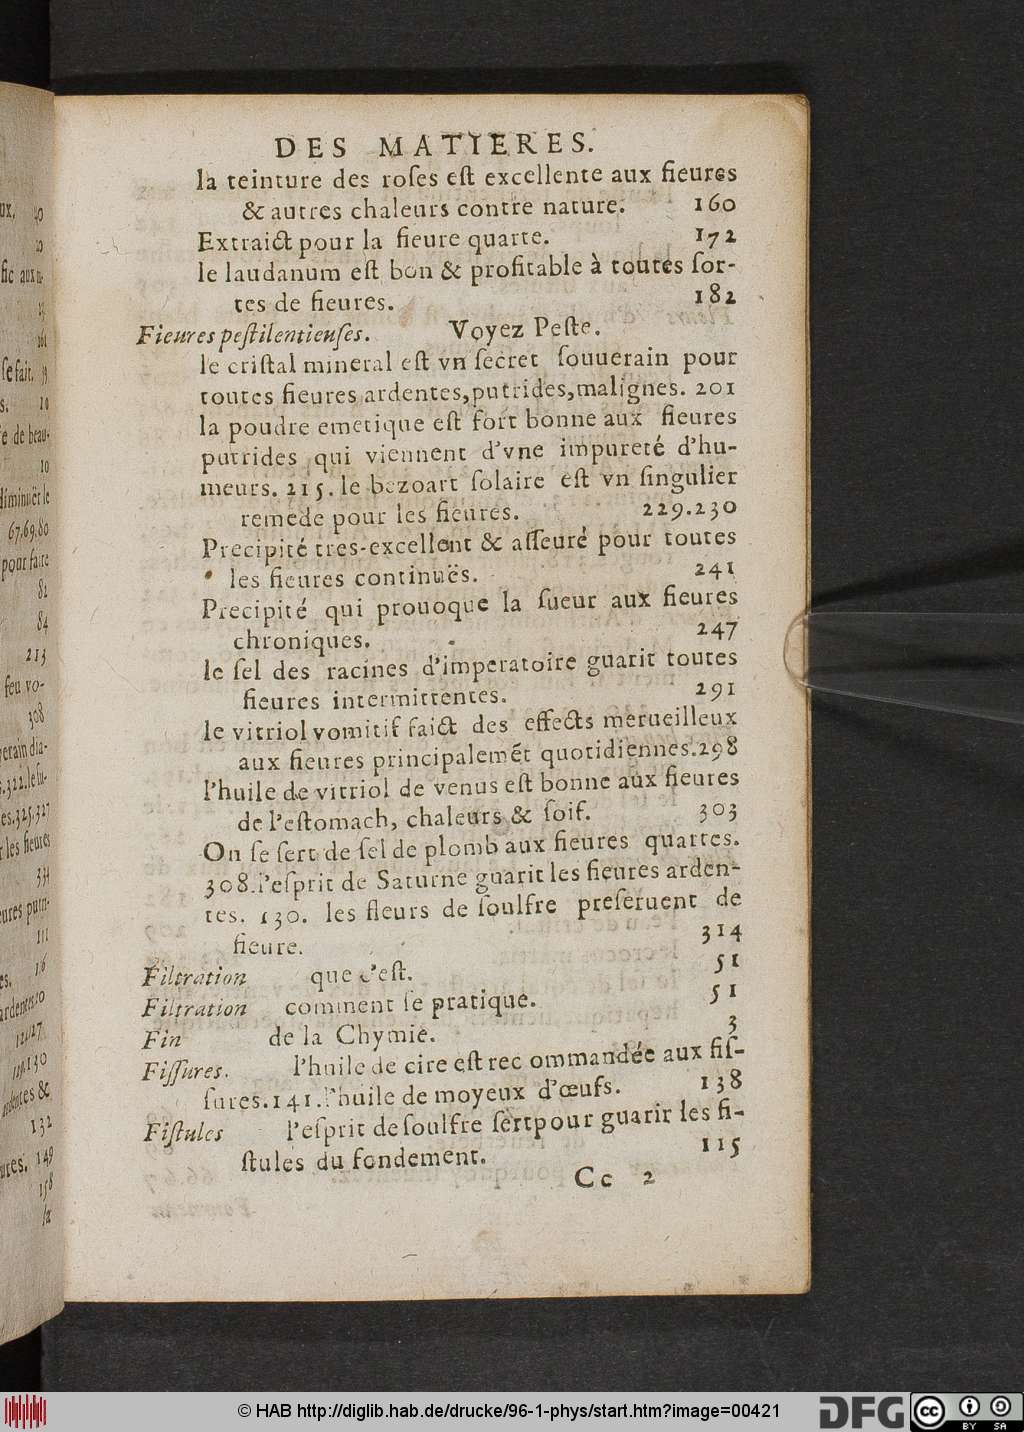 DES MATIERES.
la teinture des roſes eſt excellente aux fieures
& autres chaleurs contre nature. 160
Extraict pour la fieure quarte. 172
le laudanum eſt bon & profitable à toutes ſor-
tes de fieures. 182
Fieures peſtilentieuſes. Voyez Peſte.
le criſtal mineral eſt vn ſecret ſouuerain pour
toutes fieures ardentes, putrides, malignes. 201
la poudre emetique eſt fort bonne aux fieures
putrides qui viennent d'vne impureté d'hu-
meurs. 215. le bezoart ſolaire eſt vn ſingulier
remede pour les fieures. 229.230
Precipité tres-excellent & aſſeuré pour toutes
les fieures continuës. 241
Precipité qui prouoque la ſueur aux fieures
chroniques. 247
le ſel des racines d'imperatoire guarit toutes
fieures intermittentes. 291
le vitriol vomitif faict des effects merueilleux
aux fieures principalemẽt quotidiennes. 298
l'huile de vitriol de venus eſt bonne aux fieures
de l'eſtomach, chaleurs & ſoif. 303
On ſe ſert de ſel de plomb aux fieures quartes.
308. l'eſprit de Saturne guarit les fieures arden-
tes. 130. les fleurs de ſoulfre preſeruent de
fieure. 314
Filtration que c'eſt. 51
Filtration comment ſe pratique. 51
Fin de la Chymie. 3
Fiſſures. l'huile de cire eſt rec ommandée aux fiſ-
ſures. 141. l'huile de moyeux d'œufs. 138
Fiſtules l'eſprit de ſoulfre ſert pour guarir les fi-
ſtules du fondement. 115
Cc 2
ux, 20
ſe fait. 39
10
e de beau-
10
diminuẽt le
67.69.80
pour faire
82
84
213
feu vo-
308
erain dia-
322. le ſu-
es. 325.327
r les fieures
334
111
16
130
132
149
158
© HAB http://diglib.hab.de/drucke/96-1-phys/start.htm?image=00421
DFG
cc
BY SA